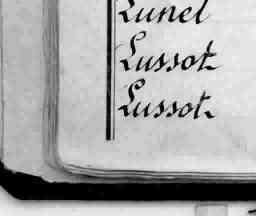 Lunel
Lussot
Lussot